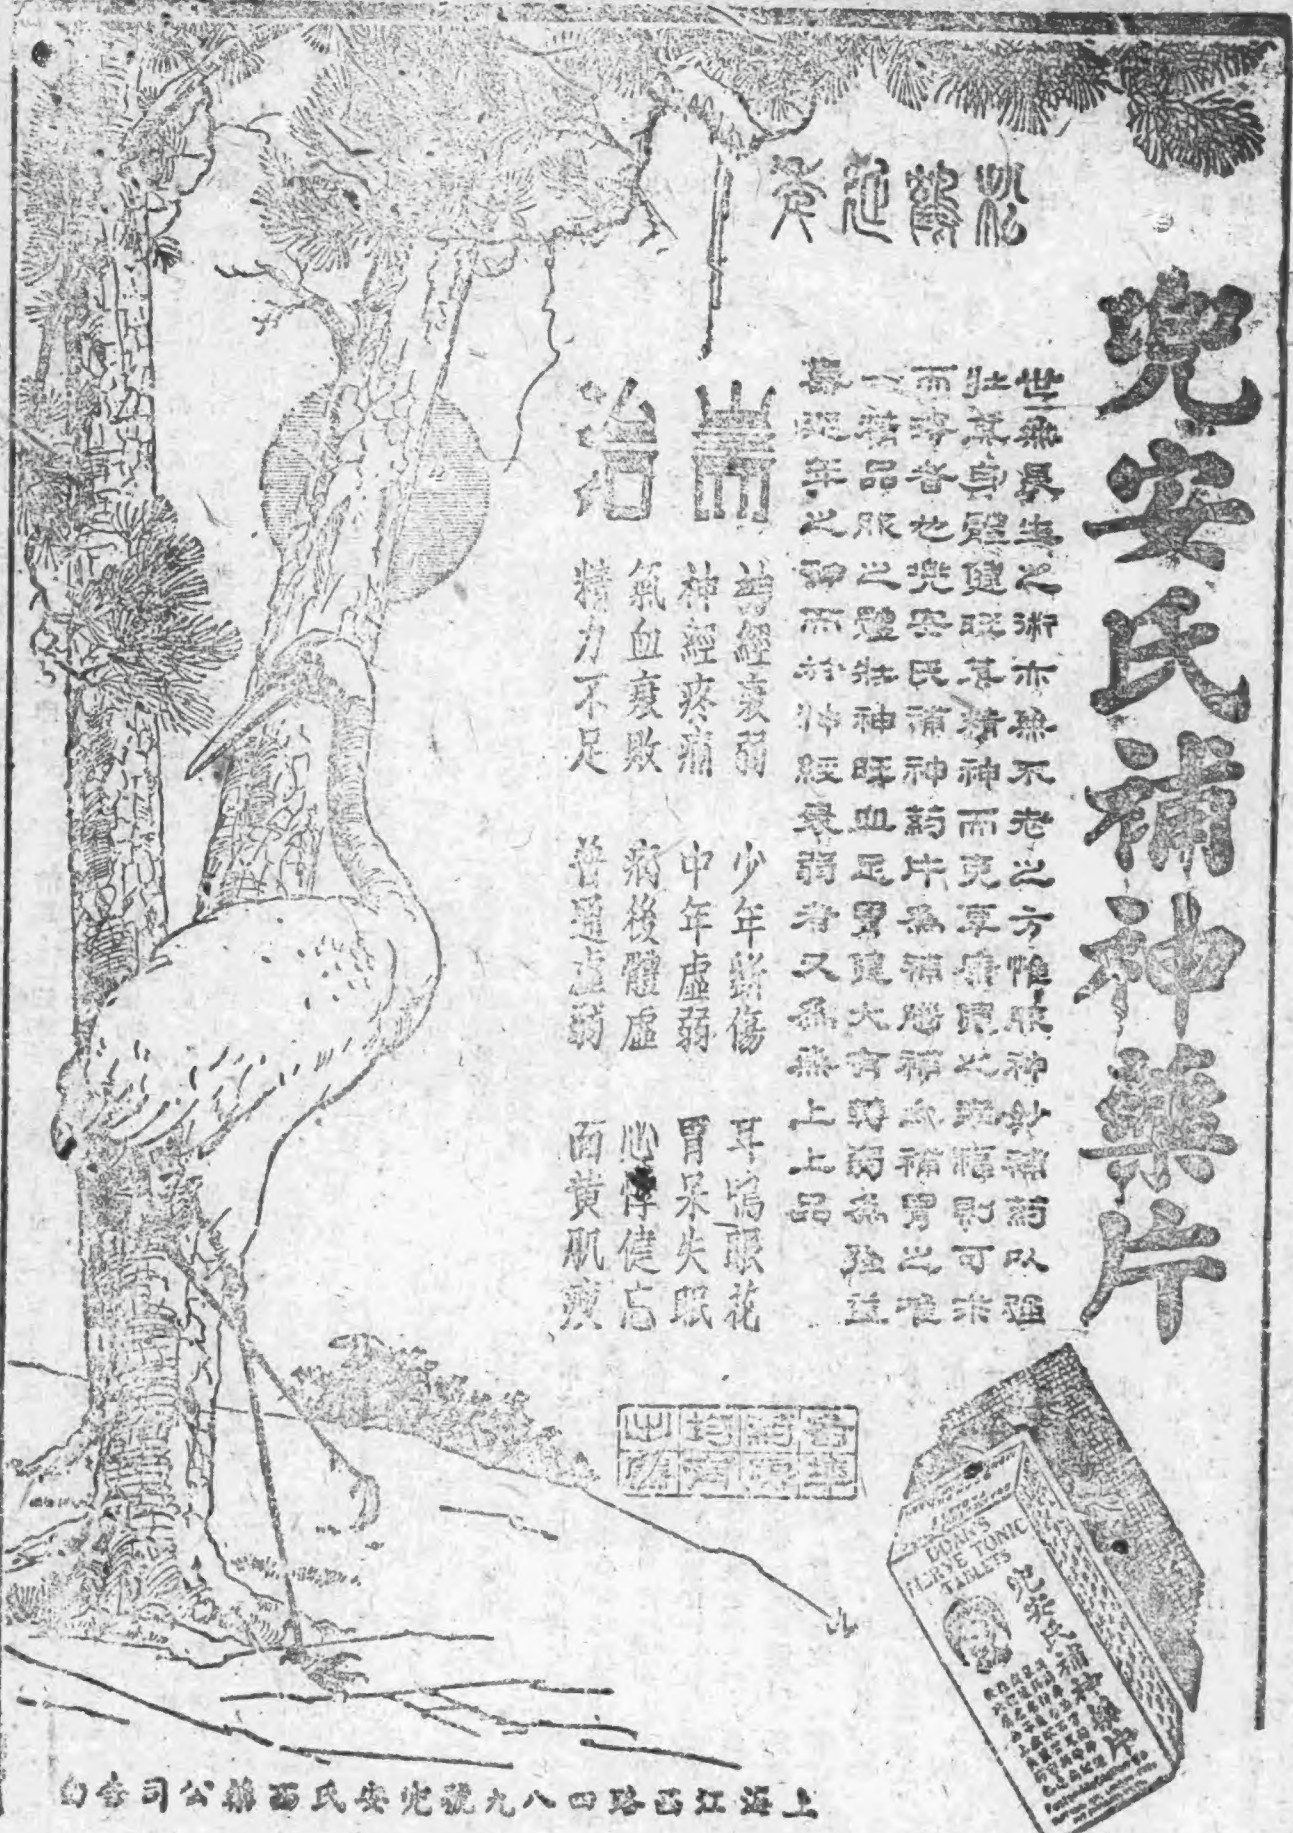 松鶴延年
兜安氏補神藥片
世無長生之術亦無不老之方惟服神妙補药以強
壯其身體健旺其精神而克享康健之幸福則可求
而得者也兜安氏補神药片為補腦補血補胃之唯
一藥品服之體壯神旺血足胃健大有轉弱為強益
壽延年之神而於神經衰弱者又為無上上品
專治
神經衰弱 少年斲傷 耳鳴眼花
神經疼痛 中年虛弱 胃呆失眠
氣血衰敗 病後體虛 心悸健忘
精力不足 普通虛弱 面黃肌瘦
各埠
药房
均有
出售
DOAN'S
NERVE TONIC
TABLETS
兜安氏補神藥片
上海江西路四八九號兜安氏西藥公司啓白